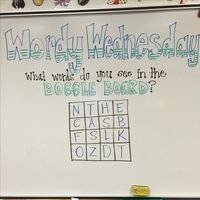 Wordy Wednesday
What words do you see in the
BOGGLE BOARD?
N T H E
C A S B
F S L K
O Z D T